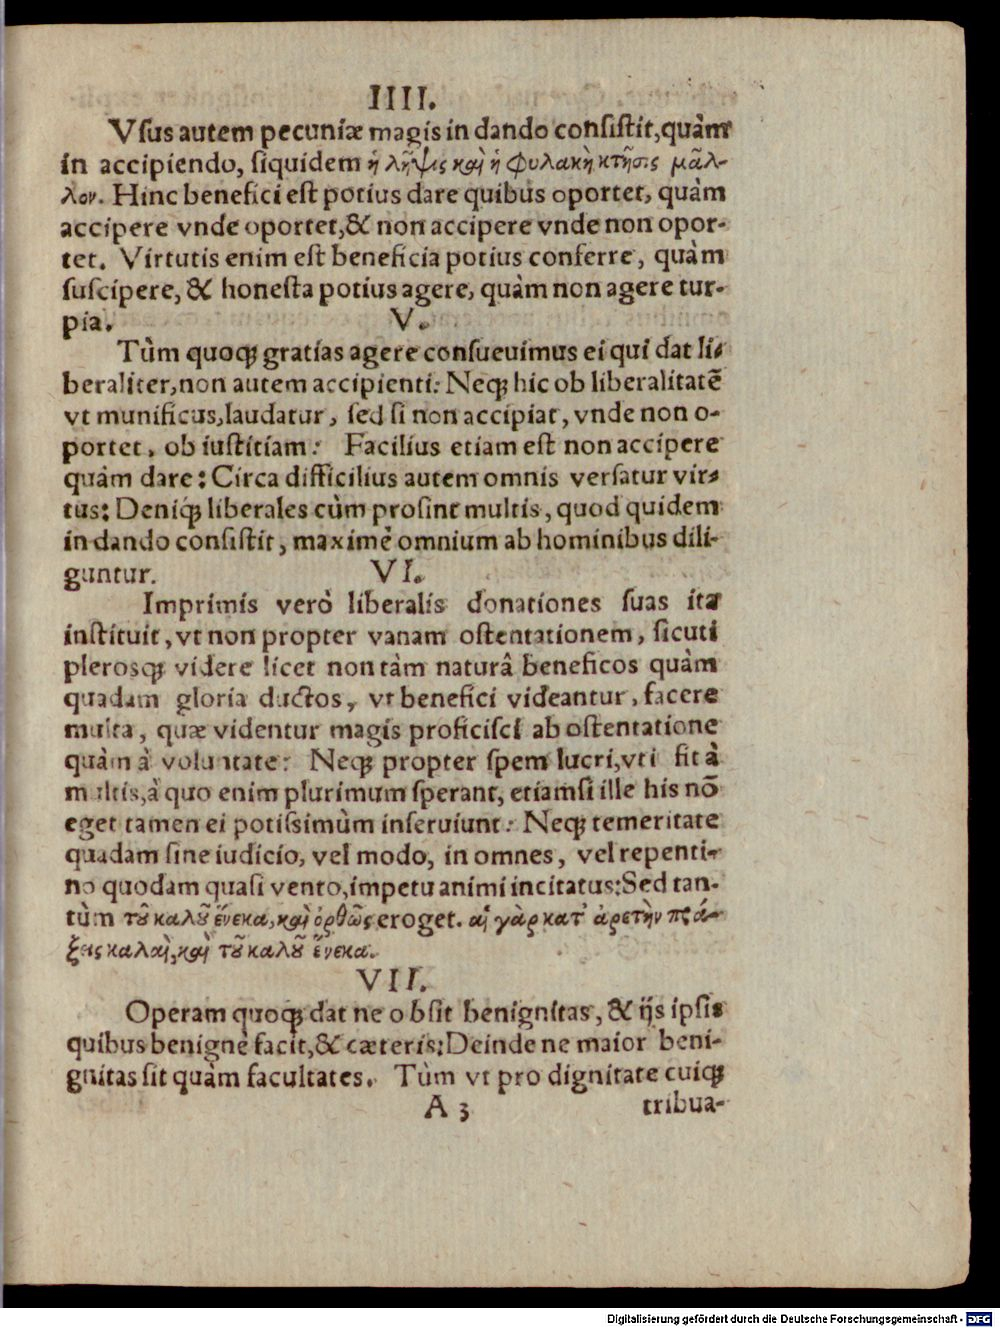 IIII.
Vſus autem pecuniæ magis in dando conſiſtit, quàm
in accipiendo, ſiquidem ἡ λῆψις καὶ ἡ φυλακὴ κτῆσις μᾶλ-
λον. Hinc benefici eſt potius dare quibus oportet, quàm
accipere vnde oportet, & non accipere vnde non opor-
tet. Virtutis enim eſt beneficia potius conferre, quàm
ſuſcipere, & honeſta potius agere, quàm non agere tur-
pia.
V.
Tùm quoq; gratias agere conſueuimus ei qui dat li-
beraliter, non autem accipienti: Neq; hic ob liberalitatē
vt munificus, laudatur, ſed ſi non accipiat, vnde non o-
portet, ob iuſtitiam: Facilius etiam eſt non accipere
quàm dare: Circa difficilius autem omnis verſatur vir-
tus: Deniq; liberales cùm proſint multis, quod quidem
in dando conſiſtit, maximè omnium ab hominibus dili-
guntur.
VI.
Imprimis verò liberalis donationes ſuas ita
inſtituit, vt non propter vanam oſtentationem, ſicuti
plerosq; videre licet non tàm naturâ beneficos quàm
quadam gloria ductos, vt benefici videantur, facere
multa, quæ videntur magis proficiſci ab oſtentatione
quàm à voluntate: Neq; propter ſpem lucri, vti fit à
multis, à quo enim plurimum ſperant, etiamſi ille his nō
eget tamen ei potiſsimùm inſeruiunt: Neq; temeritate
quadam ſine iudicio, vel modo, in omnes, vel repenti-
no quodam quaſi vento, impetu animi incitatus: Sed tan-
tùm τοῦ καλοῦ ἕνεκα, καὶ ὀρθῶς eroget. αἱ γὰρ κατ' ἀρετὴν πρά-
ξεις καλαὶ, καὶ τοῦ καλοῦ ἕνεκα.
VII.
Operam quoq; dat ne obſit benignitas, & ijs ipſis
quibus benignè facit, & cæteris: Deinde ne maior beni-
gnitas ſit quàm facultates. Tùm vt pro dignitate cuiq;
A 3 tribua-
Digitalisierung gefördert durch die Deutsche Forschungsgemeinschaft - DFG